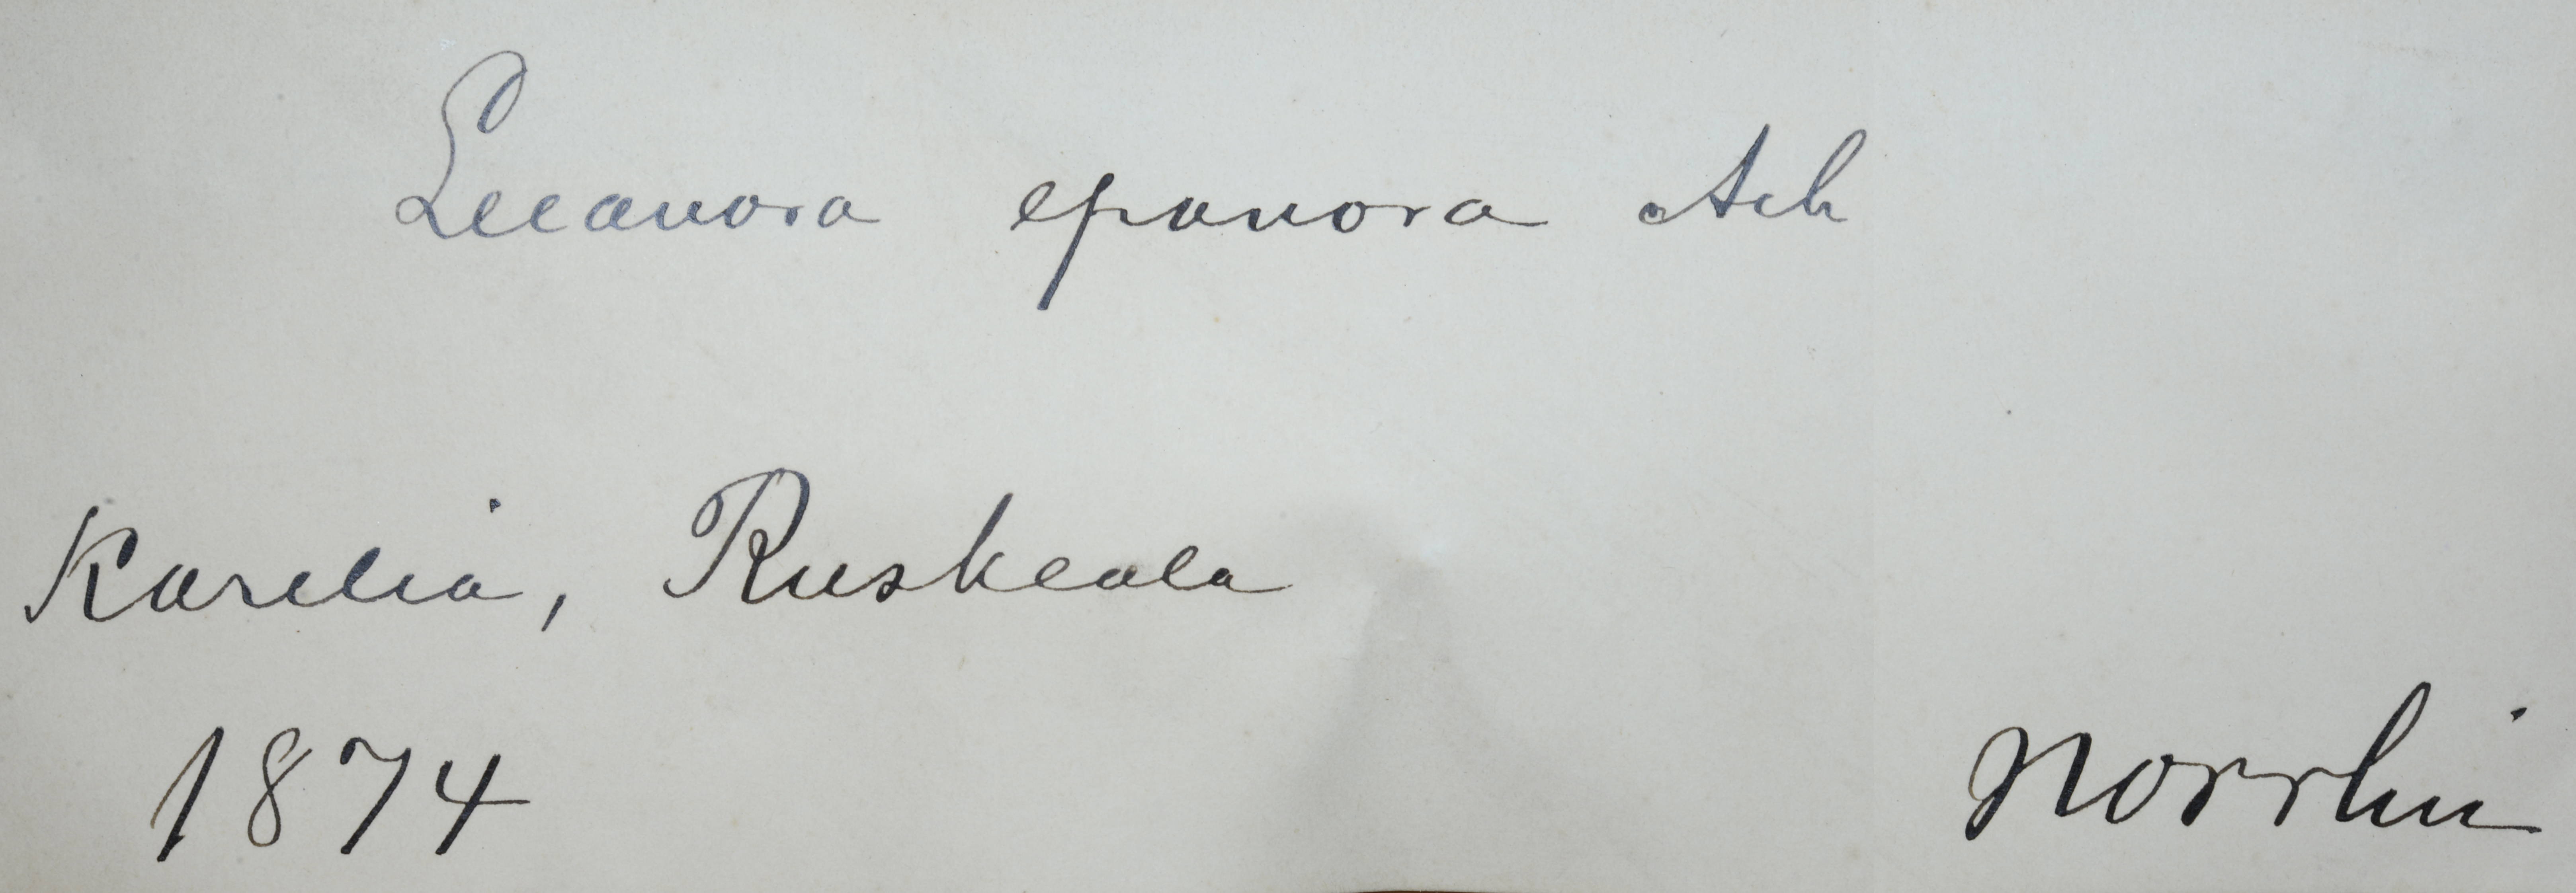 Lecanora epanora Ach
Karelia, Ruskeala
1874
Norrlin